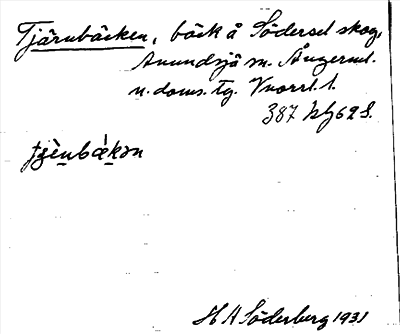 Tjärnbäcken, bäck å Södersel skog,
Anundsjö sn. Ångerml.
n. doms. tg. Vnorrl. l.
387 bζ 62 S.
H A Söderberg 1931